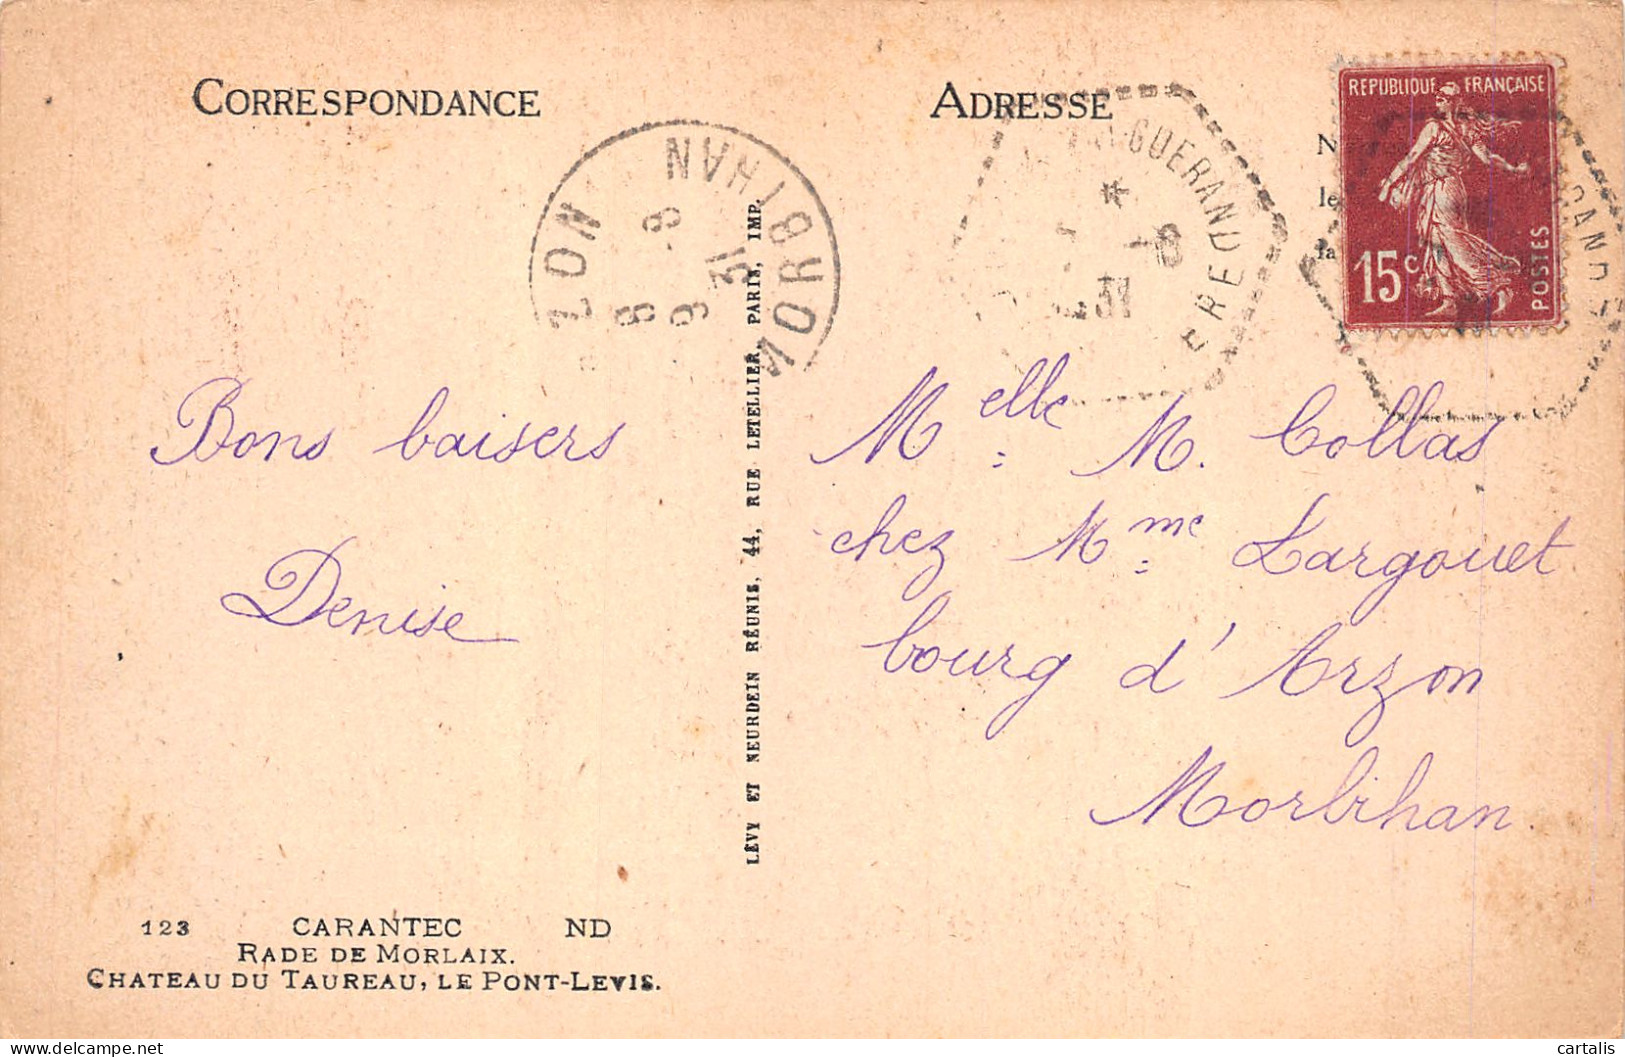 CORRESPONDANCE
ADRESSE
REPUBLIQUE FRANÇAISE
15 c
POSTES
MORBIHAN
8 - 8
31
GUERAND
31
le
la
Bons baisers
Denise
Melle M. Collas
chez Mme Largouet
bourg d'Arzon
Morbihan.
LÉVY ET NEURDEIN RÉUNIS, 44, RUE LETELLIER, PARIS, IMP.
123 CARANTEC ND
RADE DE MORLAIX.
CHATEAU DU TAUREAU, LE PONT-LEVIS.
cartalis